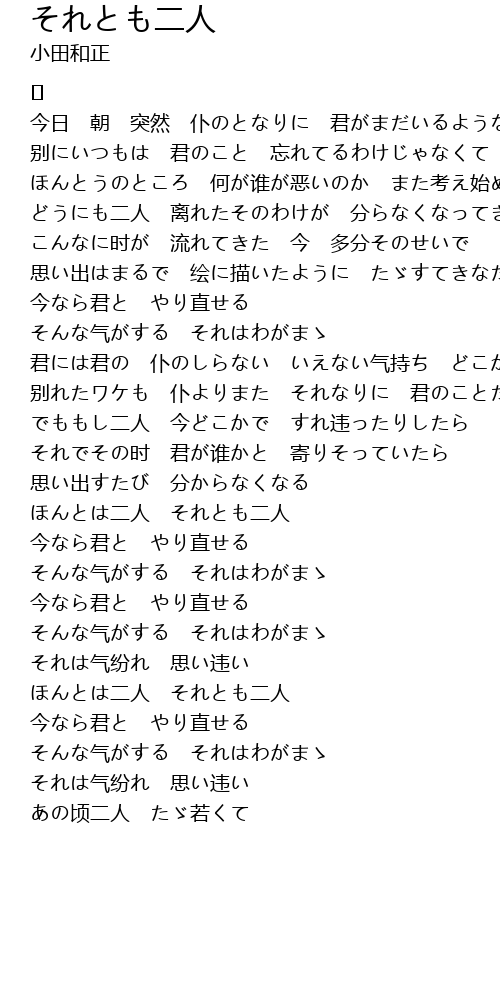 それとも二人
小田和正
今日　朝　突然　仆のとなりに　君がまだいるような
别にいつもは　君のこと　忘れてるわけじゃなくて
ほんとうのところ　何が谁が悪いのか　また考え始め
どうにも二人　离れたそのわけが　分らなくなってき
こんなに时が　流れてきた　今　多分そのせいで
思い出はまるで　绘に描いたように　たゞすてきな
今なら君と　やり直せる
そんな気がする　それはわがまゝ
君には君の　仆のしらない　いえない气持ち　どこか
别れたワケも　仆よりまた　それなりに　君のことだ
でももし二人　今どこかで　すれ违ったりしたら
それでその时　君が谁かと　寄りそっていたら
思い出すたび　分からなくなる
ほんとは二人　それとも二人
今なら君と　やり直せる
そんな气がする　それはわがまゝ
今なら君と　やり直せる
そんな气がする　それはわがまゝ
それは气纷れ　思い违い
ほんとは二人　それとも二人
今なら君と　やり直せる
そんな气がする　それはわがまゝ
それは气纷れ　思い违い
あの顷二人　たゞ若くて